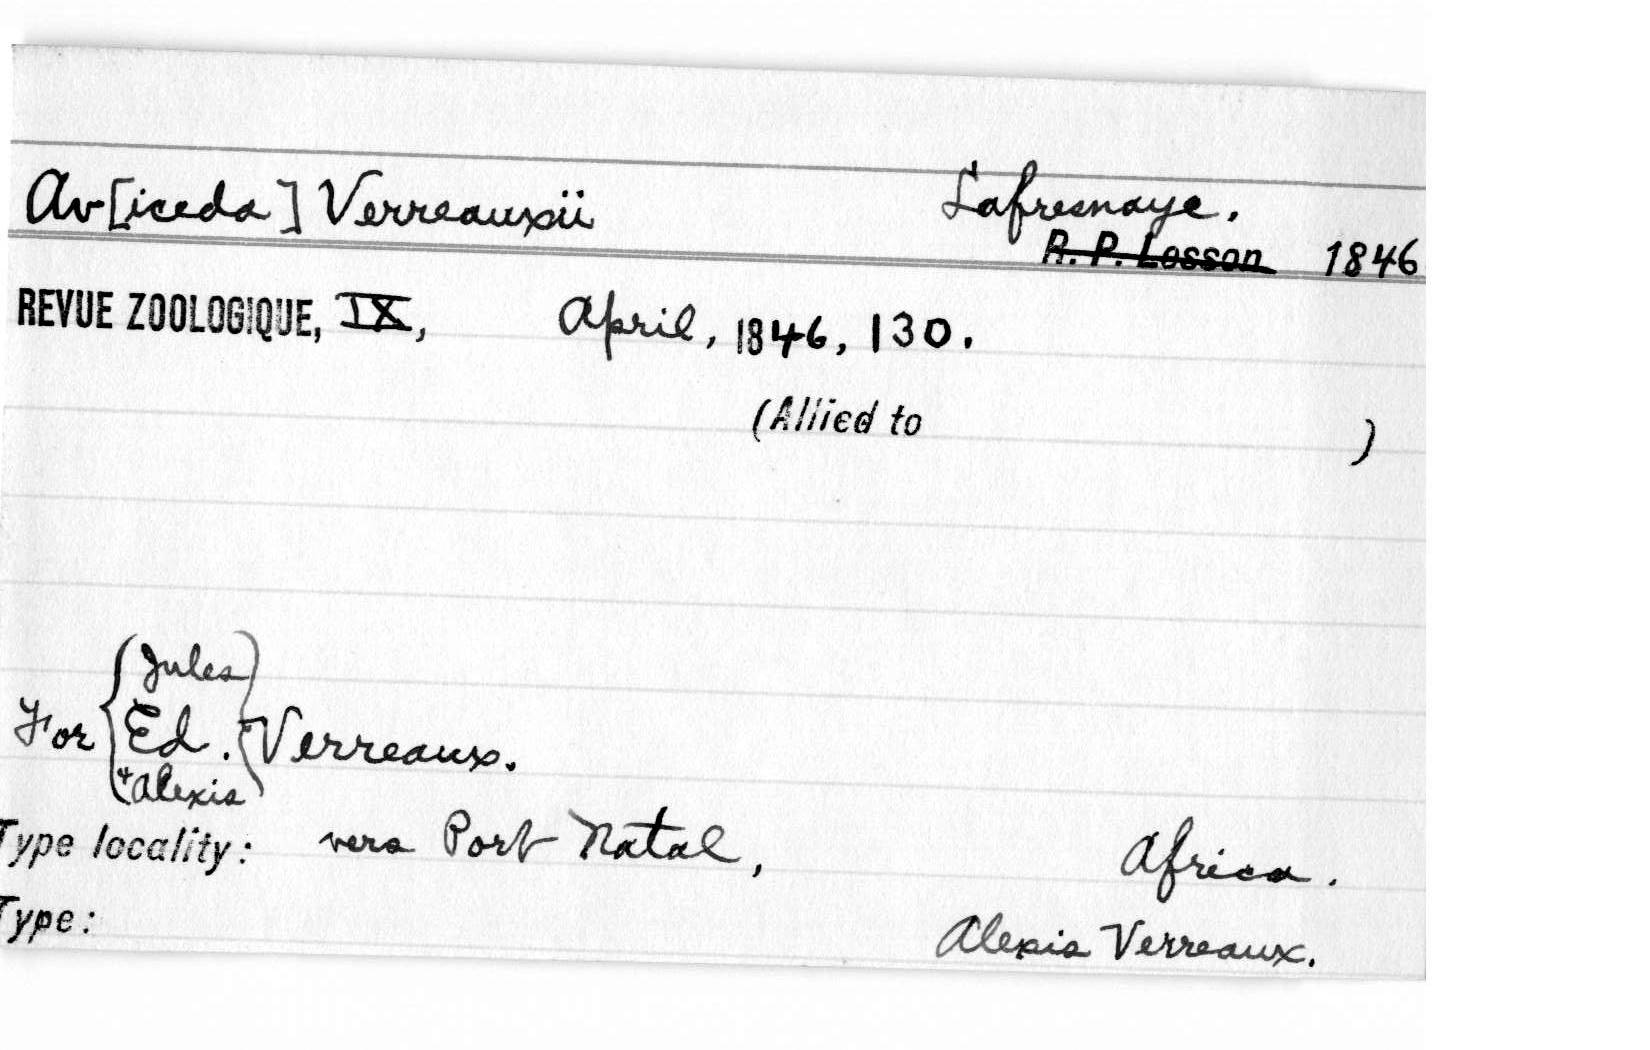 Av[iceda] Verreauxii Lafresnaye.
R. P. Lesson 1846
REVUE ZOOLOGIQUE, IX, April, 1846, 130.
(Allied to )
Jules
For Ed. Verreaux.
+ Alexis
Type locality: vers Port Natal, Africa.
Type: Alexis Verreaux.